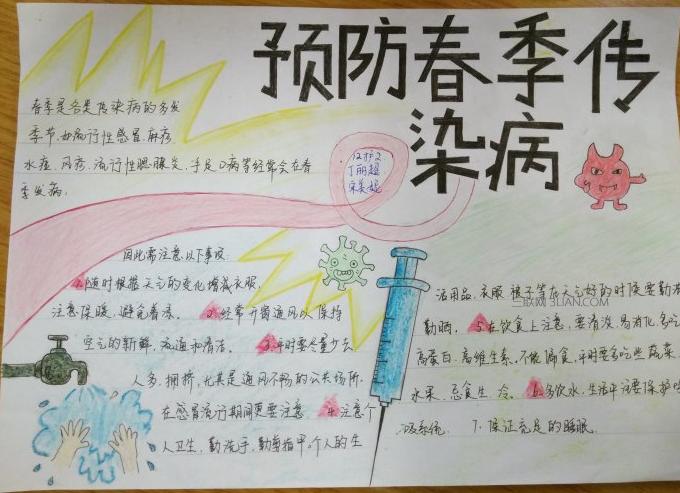 预防春季传
染病
春季是各类传染病的多发
季节,如流行性感冒、麻疹、
水痘、风疹、流行性腮腺炎、手足口病等经常会在春
季发病。
12护2
丁丽超
因此需注意以下事项:
1.随时根据天气的变化增减衣服,
注意保暖,避免着凉。 2.经常开窗通风以保持
空气的新鲜,流通和清洁。 3.平时要尽量少去
人多,拥挤,尤其是通风不畅的公共场所.
在感冒流行期间更要注意 4.注意个
人卫生,勤洗手,勤剪指甲,个人的生
活用品、衣服 被子等在天气好的时候要勤洗
勤晒。 5.在饮食上注意,要清淡,易消化,多吃
高蛋白,高维生素,不能偏食,平时要多吃些蔬菜
水果,忌食生、冷。 6.多饮水,生活中注要保护呼
吸系统. 7.保证充足的睡眠.
三联网3LIAN.COM